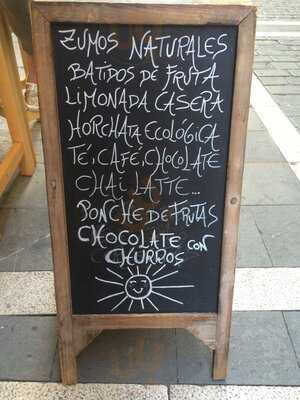 ZUMOS NATURALES
BATIDOS DE FRUTA
LIMONADA CASERA
HORCHATA ECOLÓGICA
TÉ, CAFÉ, CHOCOLATE
CHAI LATTE...
PONCHE DE FRUTAS
CHOCOLATE CON
CHURROS